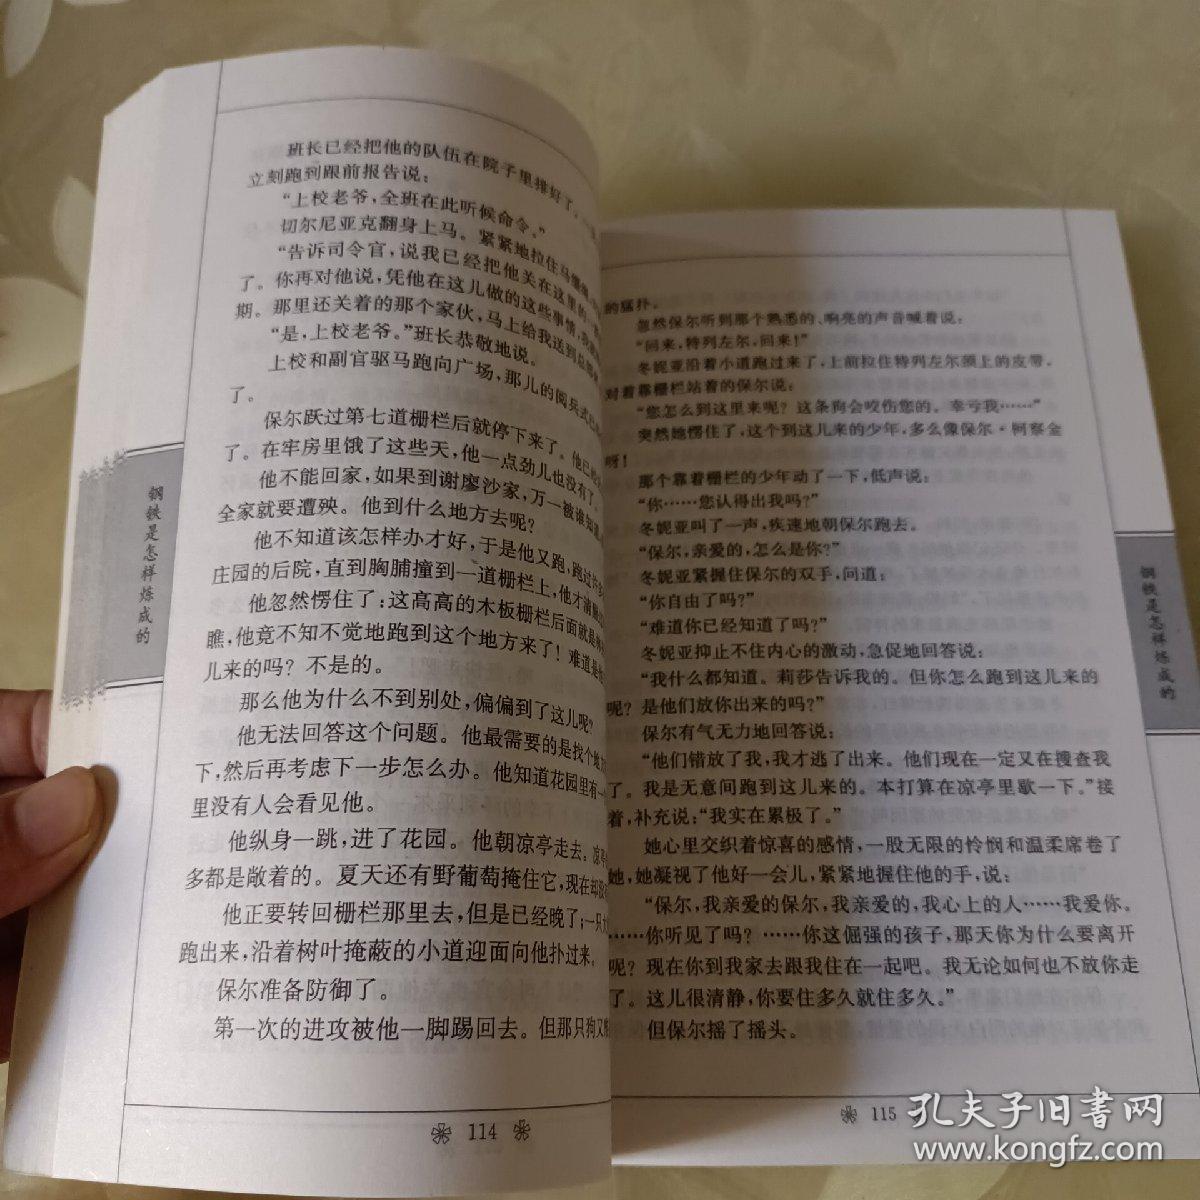 班长已经把他的队伍在院子里排好了。
立刻跑到跟前报告说：
“上校老爷，全班在此听候命令。”
切尔尼亚克翻身上马。紧紧地拉住马
“告诉司令官，说我已经把他关在这里的
了。你再对他说，凭他在这儿做的这些事情，我
期。那里还关着的那个家伙，马上给我送到总
“是，上校老爷。”班长恭敬地说。
上校和副官驱马跑向广场，那儿的阅兵式已
了。
保尔跃过第七道栅栏后就停下来了。他已经
了。在牢房里饿了这些天，他一点劲儿也没有了。
他不能回家，如果到谢廖沙家，万一被谁知道
全家就要遭殃。他到什么地方去呢？
他不知道该怎样办才好，于是他又跑，跑过许多
庄园的后院，直到胸脯撞到一道栅栏上，他才清醒
他忽然愣住了：这高高的木板栅栏后面就是
瞧，他竟不知不觉地跑到这个地方来了！难道是
儿来的吗？不是的。
那么他为什么不到别处，偏偏到了这儿呢？
他无法回答这个问题。他最需要的是找个地方
下，然后再考虑下一步怎么办。他知道花园里有一
里没有人会看见他。
他纵身一跳，进了花园。他朝凉亭走去。凉亭
多都是敞着的。夏天还有野葡萄掩住它，现在却
他正要转回栅栏那里去，但是已经晚了；一只大
跑出来，沿着树叶掩蔽的小道迎面向他扑过来。
保尔准备防御了。
第一次的进攻被他一脚踢回去。但那只狗又
钢铁是怎样炼成的
114
的猛扑。
忽然保尔听到那个熟悉的、响亮的声音喊着说：
“回来，特列左尔，回来！”
冬妮亚沿着小道跑过来了，上前拉住特列左尔颈上的皮带，
对着靠栅栏站着的保尔说：
“您怎么到这里来呢？这条狗会咬伤您的。幸亏我……”
突然她愣住了，这个到这儿来的少年，多么像保尔·柯察金
呀！
那个靠着栅栏的少年动了一下，低声说：
“你……您认得出我吗？”
冬妮亚叫了一声，疾速地朝保尔跑去。
“保尔，亲爱的，怎么是你？”
冬妮亚紧握住保尔的双手，问道：
“你自由了吗？”
“难道你已经知道了吗？”
冬妮亚抑止不住内心的激动，急促地回答说：
“我什么都知道。莉莎告诉我的。但你怎么跑到这儿来的
呢？是他们放你出来的吗？”
保尔有气无力地回答说：
“他们错放了我，我才逃了出来。他们现在一定又在搜查我
了。我是无意间跑到这儿来的。本打算在凉亭里歇一下。”接
着，补充说：“我实在累极了。”
她心里交织着惊喜的感情，一股无限的怜悯和温柔席卷了
她，她凝视了他好一会儿，紧紧地握住他的手，说：
“保尔，我亲爱的保尔，我亲爱的，我心上的人……我爱你。
……你听见了吗？……你这倔强的孩子，那天你为什么要离开
呢？现在你到我家去跟我住在一起吧。我无论如何也不放你走
了。这儿很清静，你要住多久就住多久。”
但保尔摇了摇头。
钢铁是怎样炼成的
115
孔夫子旧书网
www.kongfz.com